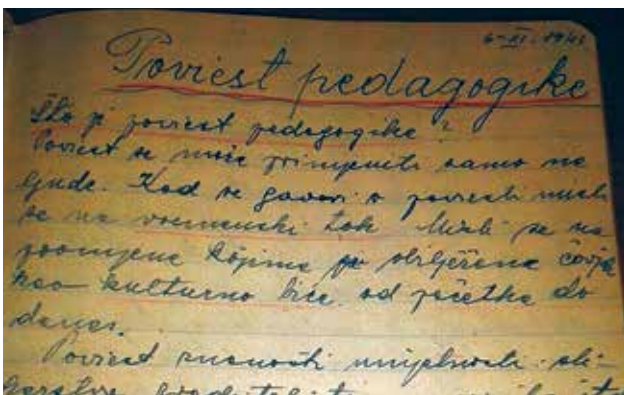 6-XI-1941
Poviest pedagogike
Što je poviest pedagogike?
Poviest se može primjeniti samo na
ljude. Kad se govori o poviesti misli
se na vremenski tok. Misli se na
promjene kojima je obilježena čovjek
kao kulturno biće od početka do
danas.
Poviest znanosti umjetnosti sli-